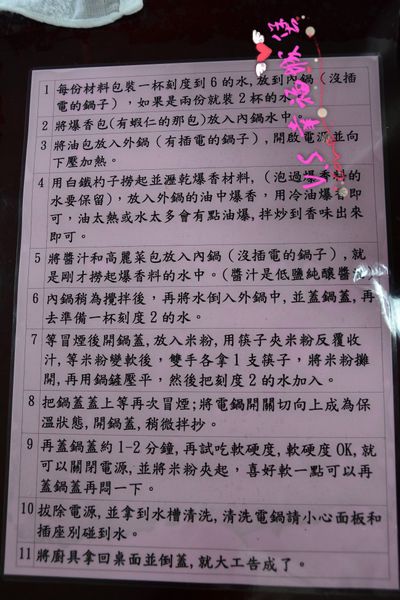 1 每份材料包裝一杯刻度到6的水,放到內鍋(沒插
電的鍋子),如果是兩份就裝2杯的水
2 將爆香包(有蝦仁的那包)放入內鍋水中。
3 將油包放入外鍋(有插電的鍋子),開啟電源並向
下壓加熱。
4 用白鐵杓子撈起並瀝乾爆香材料,(泡過爆香料的
水要保留),放入外鍋的油中爆香,用冷油爆香即
可,油太熱或水太多會有點油爆,拌炒到香味出來
即可。
5 將醬汁和高麗菜包放入內鍋(沒插電的鍋子),就
是剛才撈起爆香料的水中。(醬汁是低鹽純釀醬
6 內鍋稍為攪拌後,再將水倒入外鍋中,並蓋鍋蓋,再
去準備一杯刻度2的水。
7 等冒煙後開鍋蓋,放入米粉,用筷子夾米粉反覆收
汁,等米粉變軟後,雙手各拿1支筷子,將米粉攤
開,再用鍋鏟壓平,然後把刻度2的水加入。
8 把鍋蓋蓋上等再次冒煙;將電鍋開關切向上成為保
溫狀態,開鍋蓋,稍微拌抄。
9 再蓋鍋蓋約1-2分鐘,再試吃軟硬度,軟硬度OK,就
可以關閉電源,並將米粉夾起,喜好軟一點可以再
蓋鍋蓋再悶一下。
10 拔除電源,並拿到水槽清洗,清洗電鍋請小心面板和
插座別碰到水。
11 將廚具拿回桌面並倒蓋,就大工告成了。
V.S